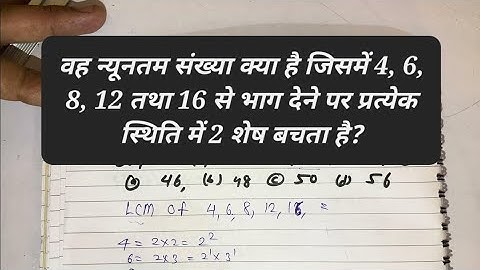 वह न्यूनतम संख्या क्या है जिसमें 4, 6,
8, 12 तथा 16 से भाग देने पर प्रत्येक
स्थिति में 2 शेष बचता है?
(a) 46, (b) 48 (c) 50 (d) 56
LCM of 4, 6, 8, 12, 16, =
4 = 2×2 = 2²
6 = 2×3 = 2¹×3¹